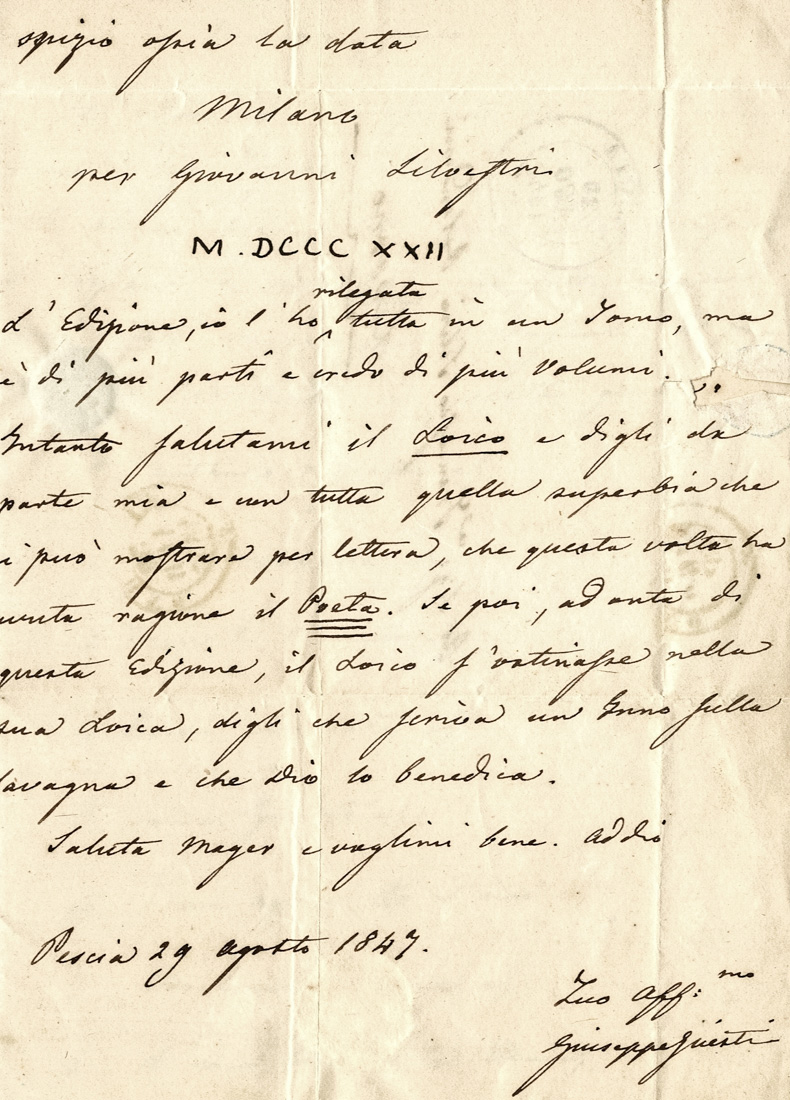 spizio ossia la data
Milano
per Giovanni Silvestri
M. DCCC XXII
rilegata
L' Edizione, io l' ho ^ tutta in un Tomo, ma
è di più parti e credo di più Volumi.
Intanto salutami il Loico e digli da
parte mia e con tutta quella superbia che
i può mostrare per lettera, che questa volta ha
avuta ragione il Poeta. Se poi, ad onta di
questa Edizione, il Loico s'ostinasse nella
sua Loica, digli che scriva un Inno sulla
lavagna e che Dio lo benedica.
Saluta Mayer e voglimi bene. Addio
Pescia 29 agosto 1847.
Tuo Aff:mo
Giuseppe Giusti